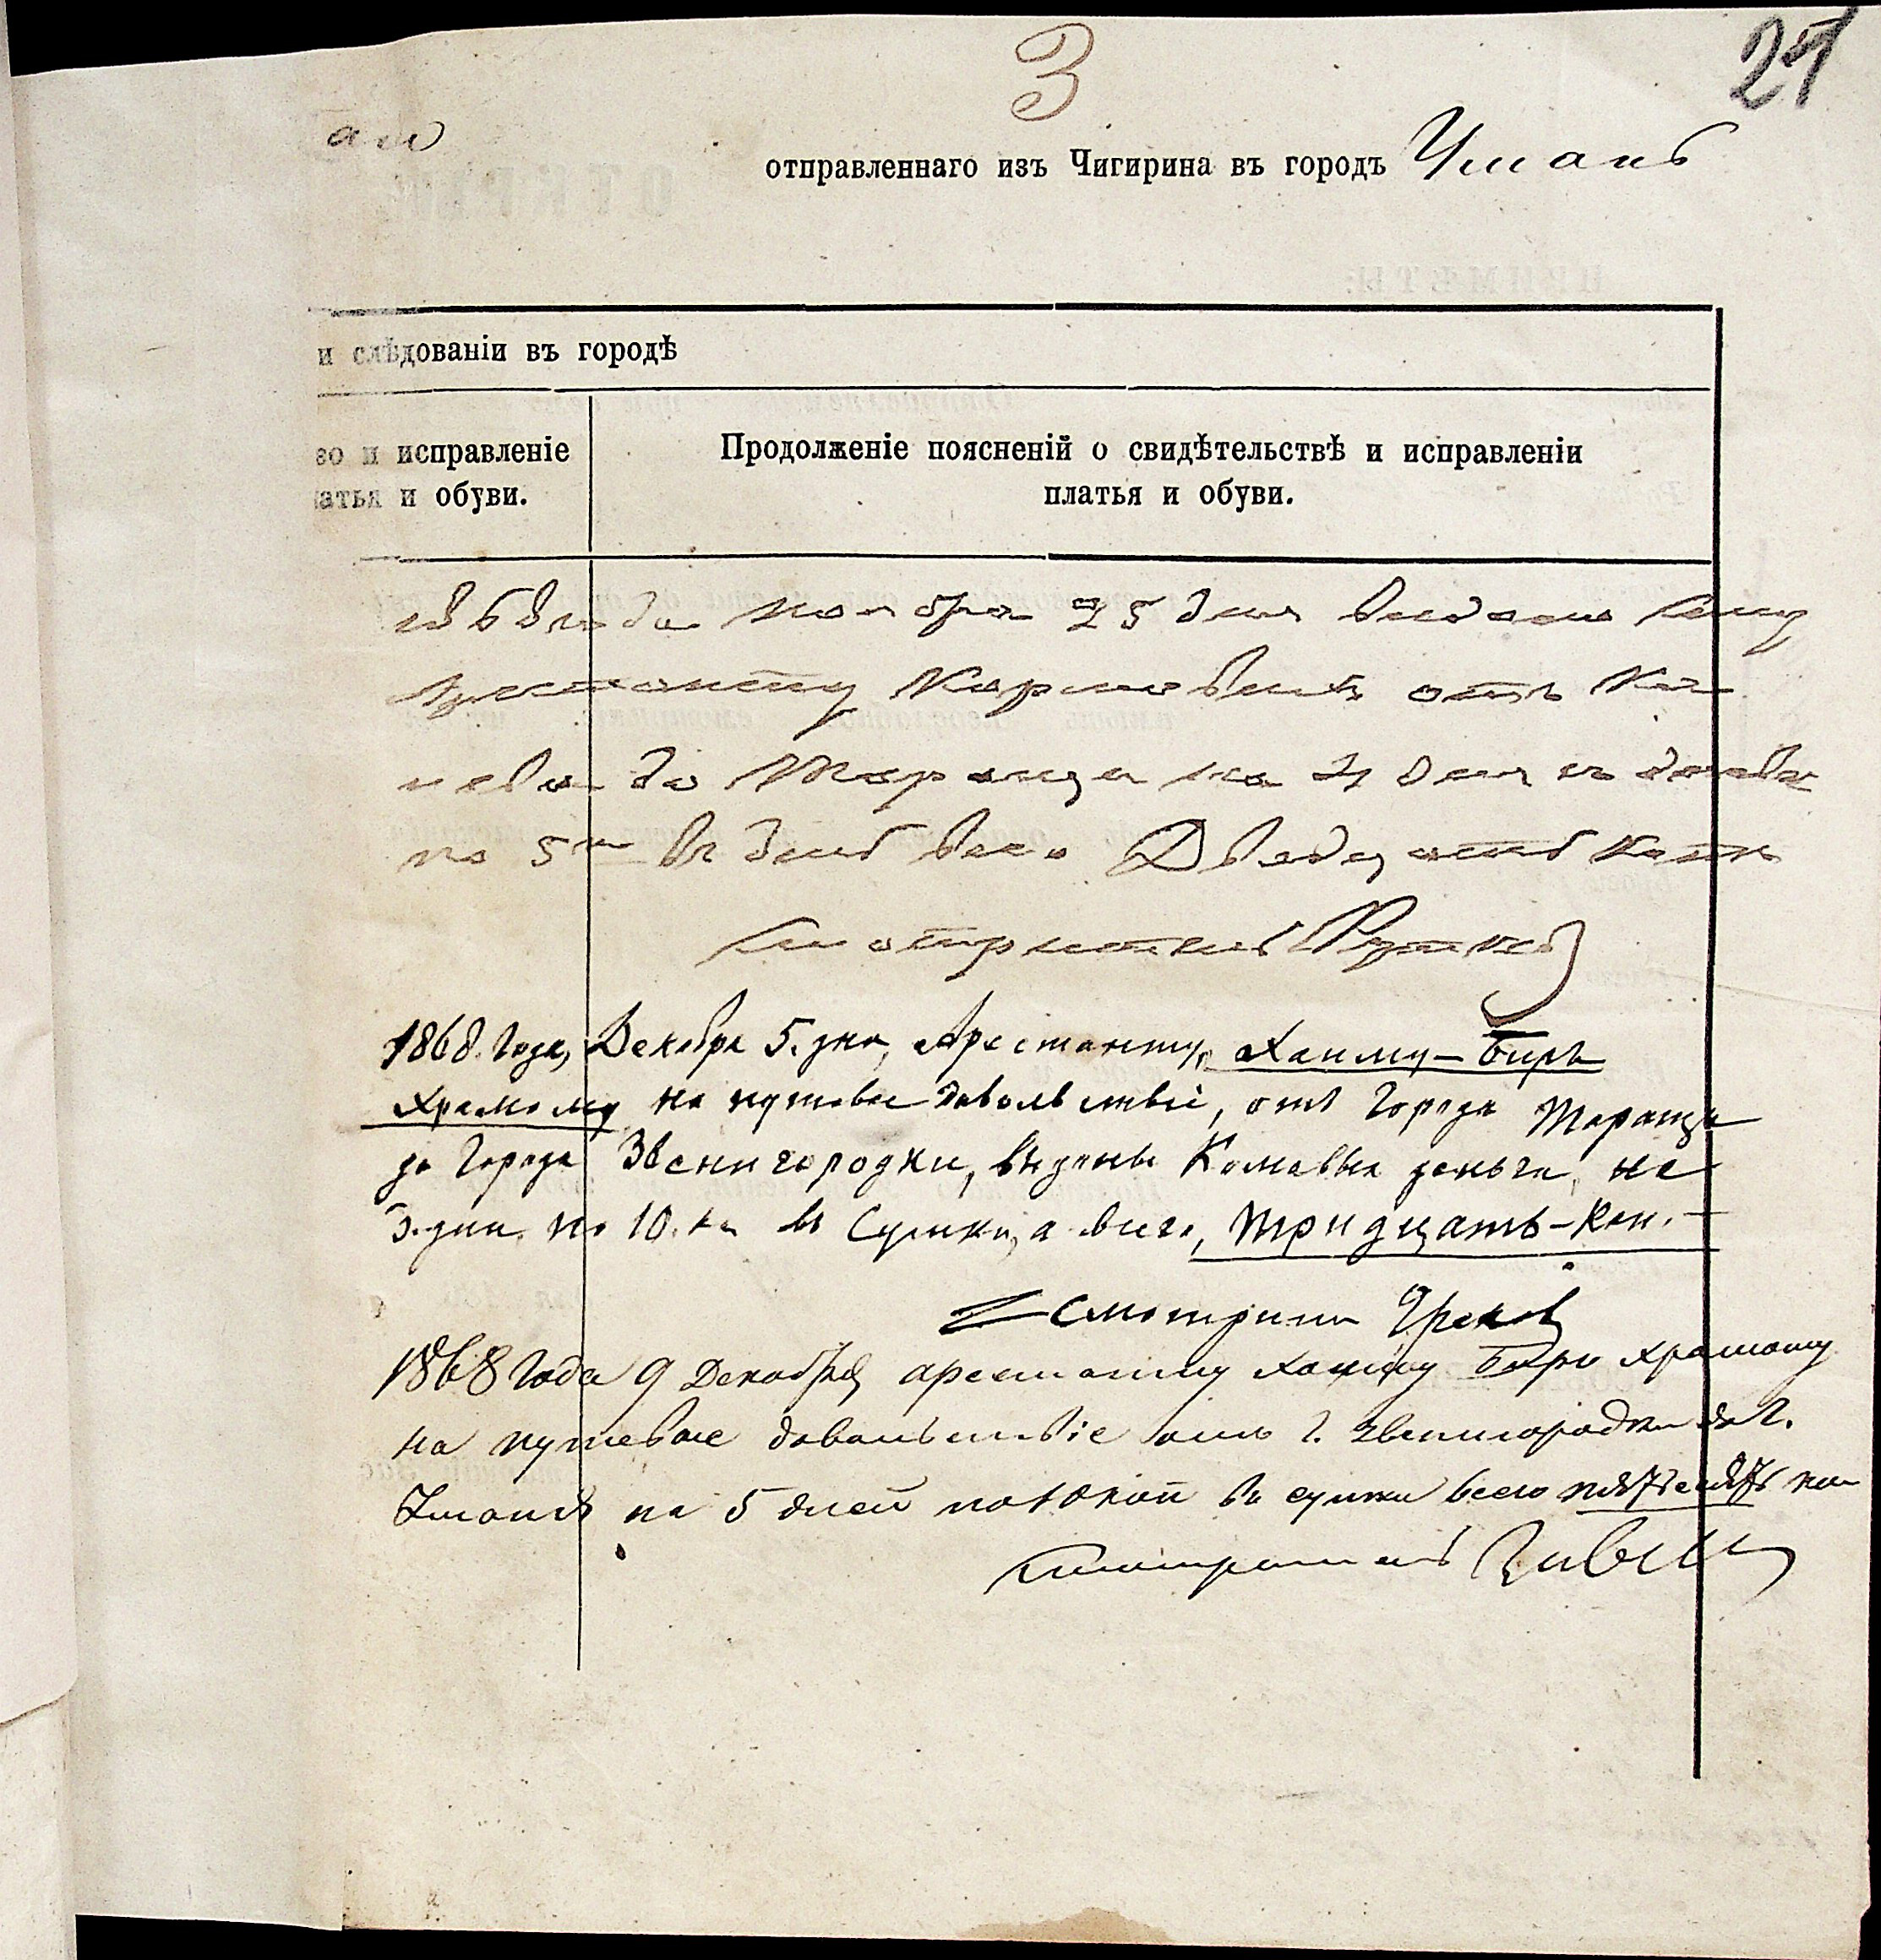 3
27
отправленнаго изъ Чигирина въ городъ Умань
и слѣдованіи въ городѣ
во и исправленіе
латья и обуви.
Продолженіе поясненій о свидѣтельствѣ и исправленіи
платья и обуви.
года ноября 25 дня выдано сему
Арестанту Кормовыхъ отъ Ка
нева до Таращи на 4 дня
по 5 к въ день всего Двадцать Копѣ
Смотритель
1868. Года, Декабря 5. дня, Арестанту, Хаиму – Беръ
Храмому на путевое доволствіе, отъ Города Таращи
до Города Звенигородки, выданы Комовыя деньги, на
3. дни по 10. ко въ Сутки, а всего, Тридцать – Коп. –
Смотритель Греков
1868 Года 9 Декабря арестанту Хаиму Беру Храмому
на путевое довольствіе отъ г. Звенигородки до г.
Умани на 5 дней по 10 коп въ сутки всего пятьдесятъ коп
Смотритель